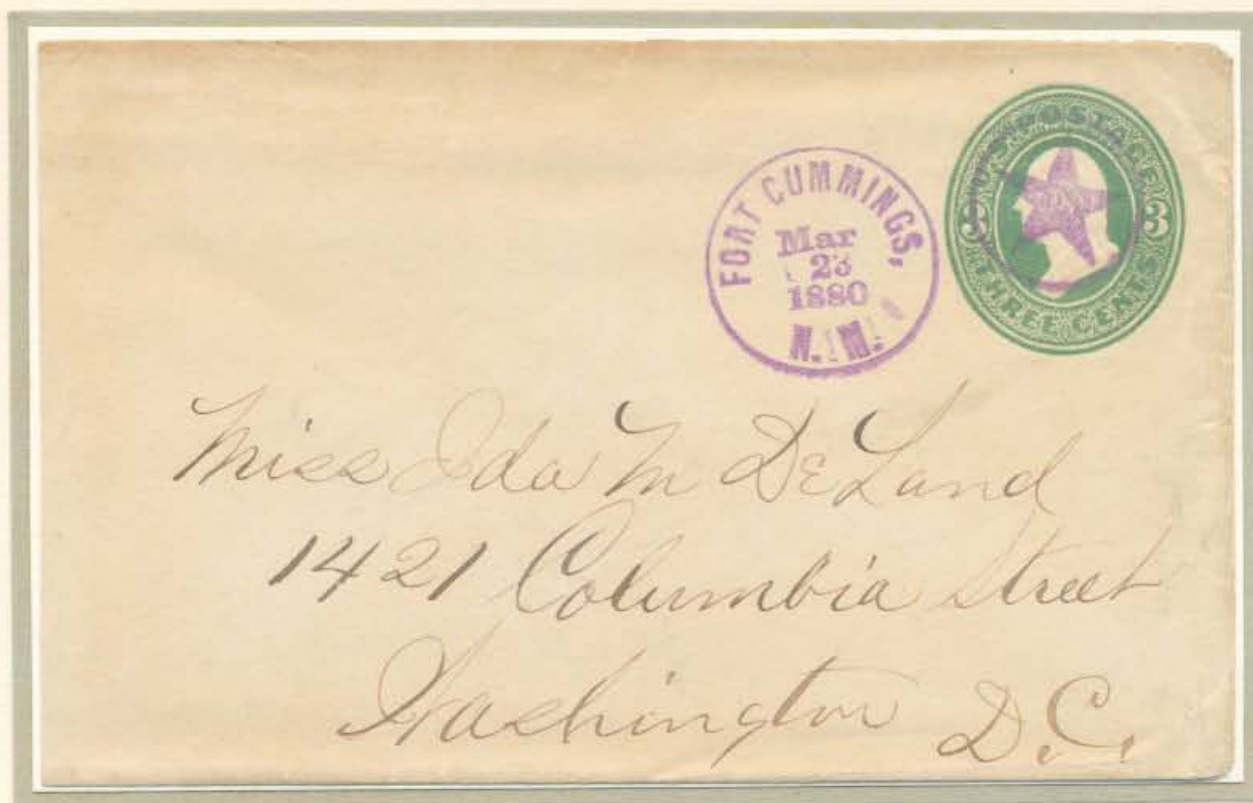 FORT CUMMINGS,
Mar
23
1880
N. M.
U.S. POSTAGE
3 3
THREE CENTS
Miss Ida M DeLand
1421 Columbia Street
Washington D.C.